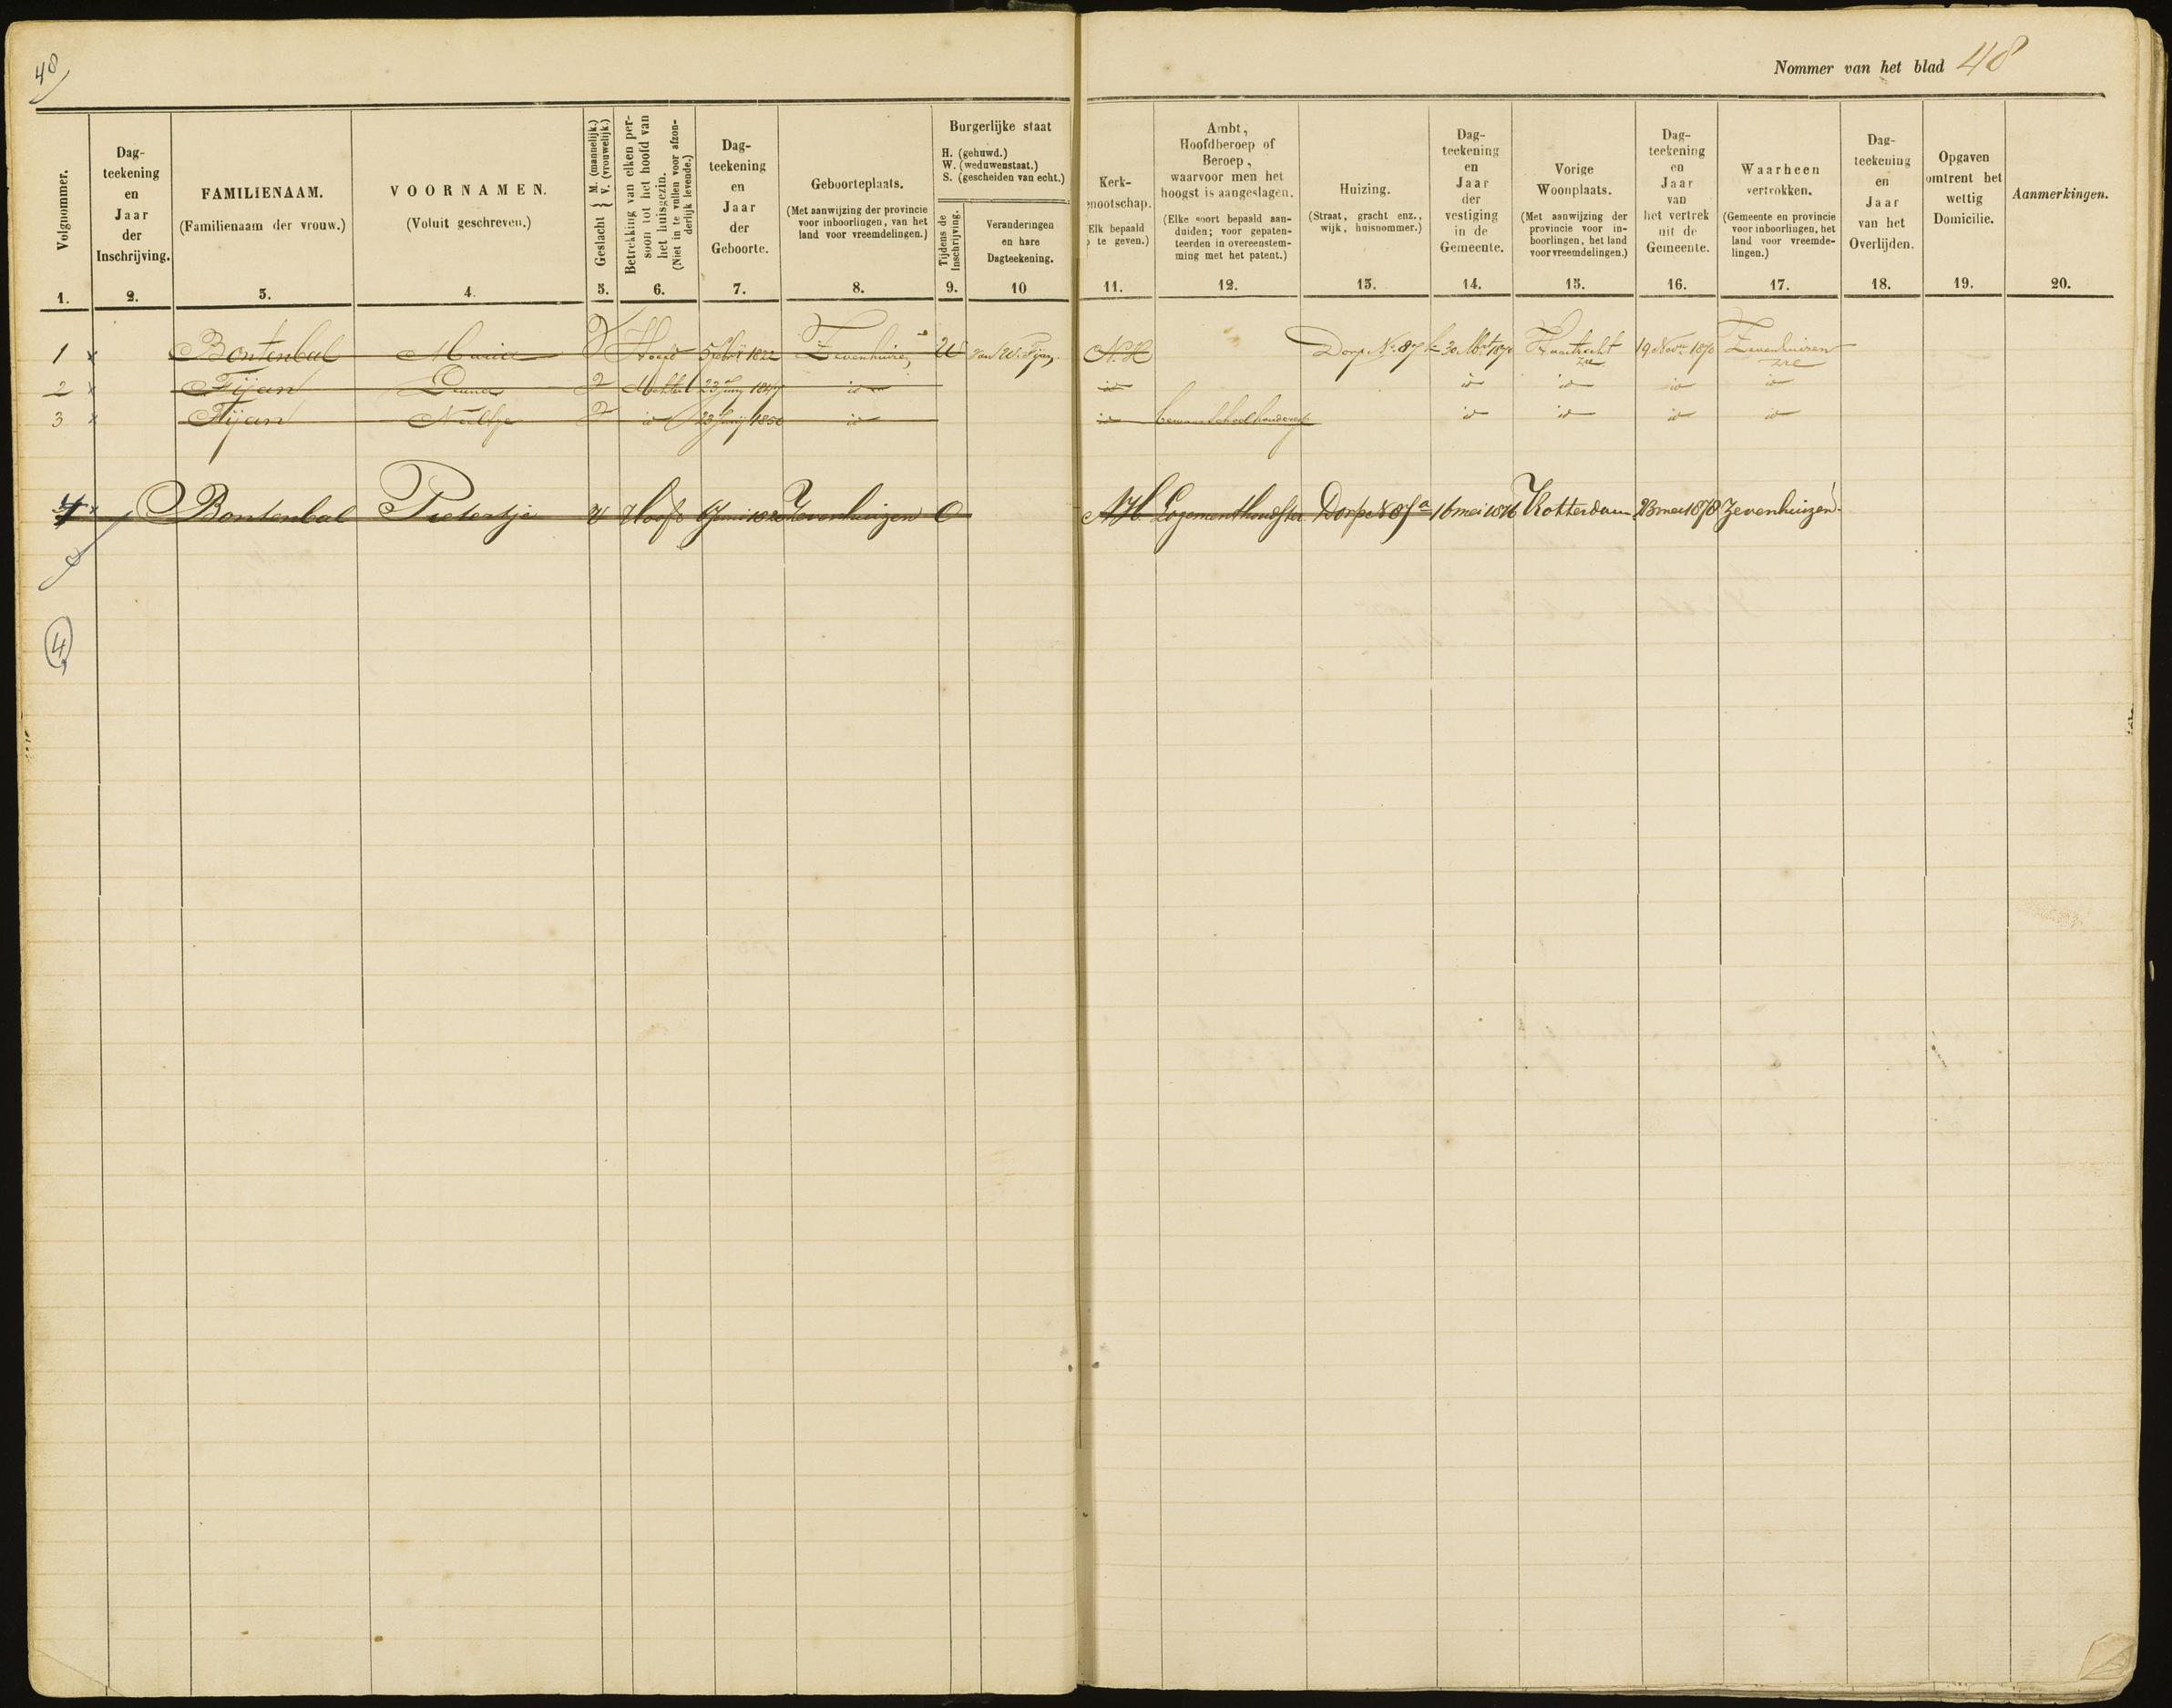 48
Nommer van het blad 48
Volgnommer.
1.
Dag-
teekening
en
Jaar
der
Inschrijving.
2.
FAMILIENAAM.
(Familienaam der vrouw.)
3.
VOORNAMEN.
(Voluit geschreven.)
4.
Geslacht { M. (mannelijk.) V. (vrouwelijk.)
5.
Betrekking van elken per-
soon tot het hoofd van
het huisgezin.
(Niet in te vullen voor afzon-
derlijk levende.)
6.
Dag-
teekening
en
Jaar
der
Geboorte.
7.
Geboorteplaats.
(Met aanwijzing der provincie
voor inboorlingen, van het
land voor vreemdelingen.)
8.
Burgerlijke staat
H. (gehuwd.)
W. (weduwenstaat.)
S. (gescheiden van echt.)
Tijdens de
Inschrijving.
9.
Veranderingen
en hare
Dagteekening.
10
Kerk-
enootschap.
Elk bepaald
te geven.)
11.
Ambt,
Hoofdberoep of
Beroep,
waarvoor men het
hoogst is aangeslagen.
(Elke soort bepaald aan-
duiden; voor gepaten-
teerden in overeenstem-
ming met het patent.)
12.
Huizing.
(Straat, gracht enz.,
wijk, huisnommer.)
13.
Dag-
teekening
en
Jaar
der
vestiging
in de
Gemeente.
14.
Vorige
Woonplaats.
(Met aanwijzing der
provincie voor in-
boorlingen, het land
voor vreemdelingen.)
15.
Dag-
teekening
en
Jaar
van
het vertrek
uit de
Gemeente.
16.
Waarheen
vertrokken.
(Gemeente en provincie
voor inboorlingen, het
land voor vreemde-
lingen.)
17.
Dag-
teekening
en
Jaar
van het
Overlijden.
18.
Opgaven
omtrent het
wettig
Domicilie.
19.
Aanmerkingen.
20.
1 x Bontenbal Maria V Hoofd 1822 Zevenhuizen W van W. Fijan N.H. Dorp No. 87 1870 19 Novr 1870 Zevenhuizen
2 x Fijan V 23 Junij id id id id id id
3 x Fijan Neeltje V id 23 Junij 1850 id id bewaarschoolhouderes id id id id
4 x Bontenbal Pietertje V Hoofd Zevenhuizen O N.H. Logementhoudster Dorp No 87a 16 mei 1876 Rotterdam 23 mei 1878 Zevenhuizen
4